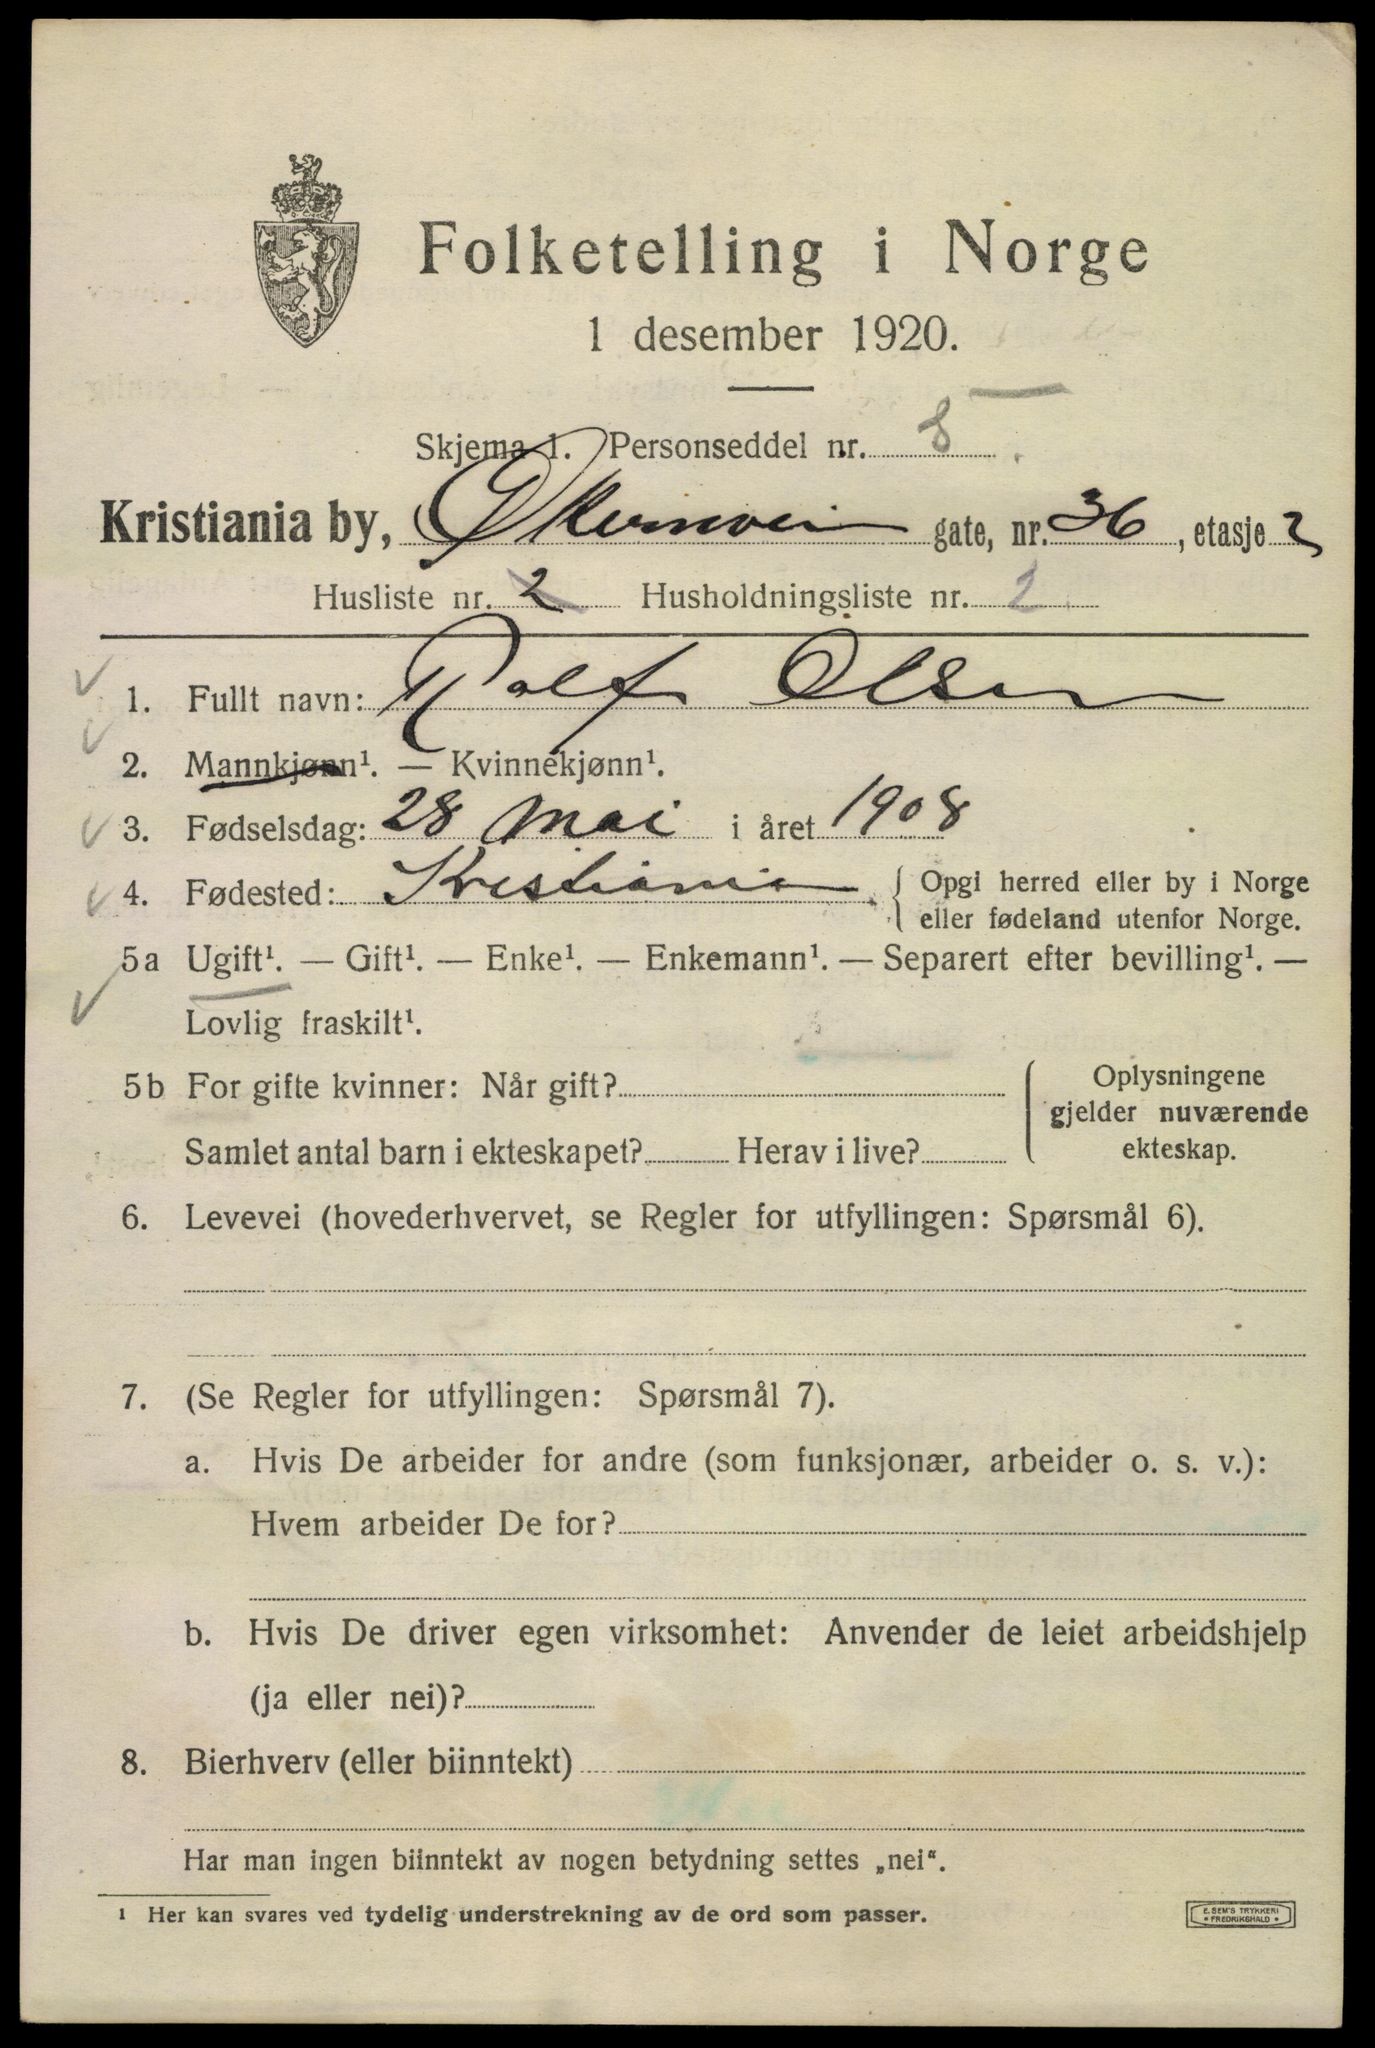 Folketelling i Norge
1 desember 1920.
Skjema 1. Personseddel nr. 8
Kristiania by, Økernvei gate, nr. 36, etasje 2
Husliste nr. 2 Husholdningsliste nr. 2
1. Fullt navn: Rolf Olsen
2. Mannkjønn¹. — Kvinnekjønn¹.
3. Fødselsdag: 28 Mai i året 1908
4. Fødested: Kristiania { Opgi herred eller by i Norge
eller fødeland utenfor Norge.
5a Ugift¹. — Gift¹. — Enke¹. — Enkemann¹. — Separert efter bevilling¹. —
Lovlig fraskilt¹.
5b For gifte kvinner: Når gift?
Samlet antal barn i ekteskapet? Herav i live?
Oplysningene
gjelder nuværende
ekteskap.
6. Levevei (hovederhvervet, se Regler for utfyllingen: Spørsmål 6).
7. (Se Regler for utfyllingen: Spørsmål 7).
a. Hvis De arbeider for andre (som funksjonær, arbeider o. s. v.):
Hvem arbeider De for?
b. Hvis De driver egen virksomhet: Anvender de leiet arbeidshjelp
(ja eller nei)?
8. Bierhverv (eller biinntekt)
Har man ingen biinntekt av nogen betydning settes „nei“.
¹ Her kan svares ved tydelig understrekning av de ord som passer.
E. SEM'S TRYKKERI
• FREDRIKSHALD •